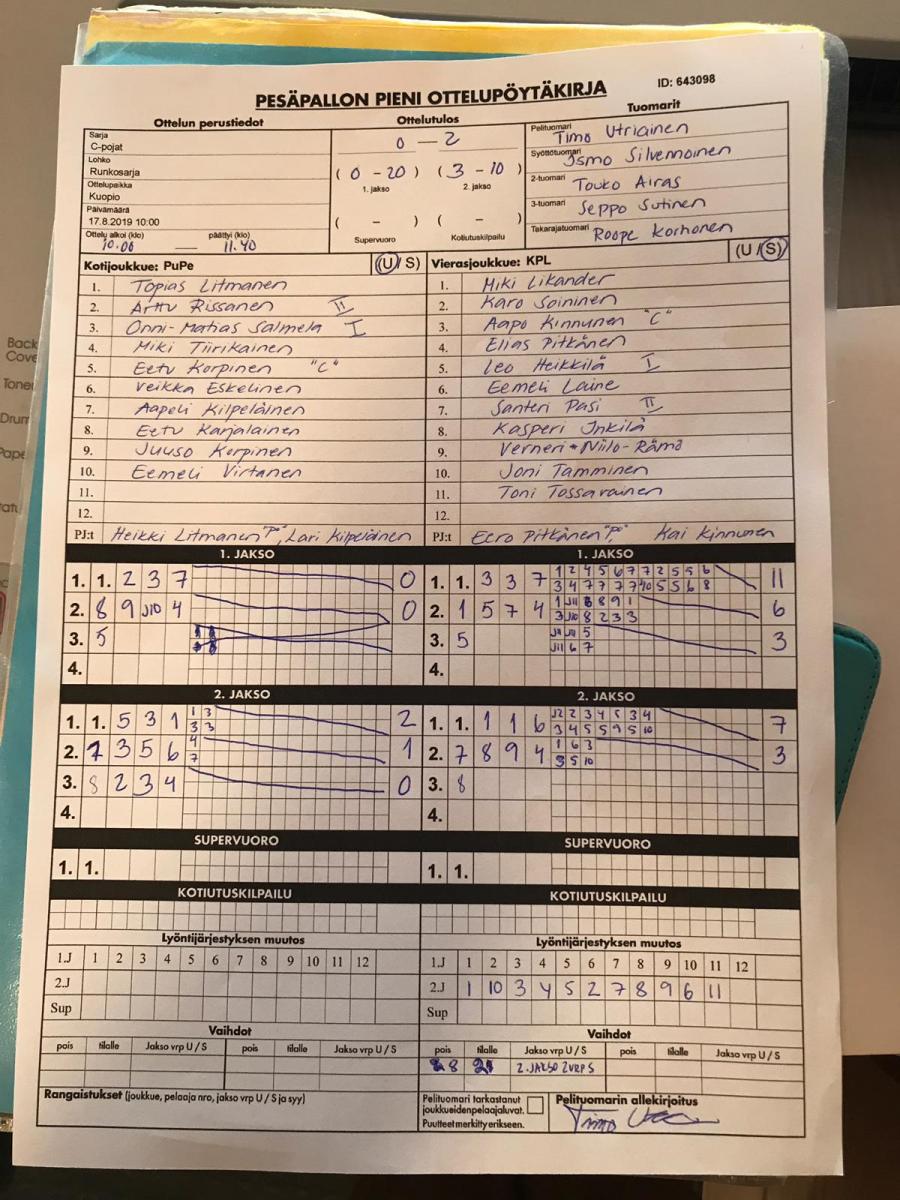 PESÄPALLON PIENI OTTELUPÖYTÄKIRJA
ID: 643098
Ottelun perustiedot
Sarja
C-pojat
Lohko
Runkosarja
Ottelupaikka
Kuopio
Päivämäärä
17.8.2019 10:00
Ottelu alkoi (klo) päättyi (klo)
10.00 — 11.40
Ottelutulos
0 — 2
( 0 - 20 ) ( 3 - 10 )
1. jakso 2. jakso
( - ) ( - )
Supervuoro Kotiutuskilpailu
Tuomarit
Pelituomari Timo Utriainen
Syöttötuomari Ismo Silvennoinen
2-tuomari Touko Airas
3-tuomari Seppo Sutinen
Takarajatuomari Roope Korhonen
Kotijoukkue: PuPe (U/ S)
1. Topias Litmanen
2. Arttu Rissanen II
3. Onni-Matias Salmela I
4. Miki Tiirikainen
5. Eetu Korpinen "C"
6. Veikka Eskelinen
7. Aapeli Kilpeläinen
8. Eetu Karjalainen
9. Juuso Korpinen
10. Eemeli Virtanen
11.
12.
PJ:t Heikki Litmanen "PJ", Lari Kilpeläinen
Vierasjoukkue: KPL (U /S)
1. Miki Likander
2. Karo Soininen
3. Aapo Kinnunen "C"
4. Elias Pitkänen
5. Leo Heikkilä I
6. Eemeli Laine
7. Santeri Pasi II
8. Kasperi Inkilä
9. Verneri Niilo-Rämä
10. Joni Tamminen
11. Toni Tossavainen
12.
PJ:t Eero Pitkänen "PJ", Kai Kinnunen
1. JAKSO
1. 1. 2 3 7 0
2. 8 9 J10 4 0
3. 5
4.
1. JAKSO
1 2 4 5 6 7 7 2 5 5 6
1. 1. 3 3 7 11
3 4 7 7 7 7 10 5 5 6 8
1 J11 6 8 9 1
2. 1 5 7 4 6
3 J10 8 2 3 3
J11 5
3. 5 3
J11 6 7
4.
2. JAKSO
1 3
1. 1. 5 3 1 2
3 3
4
2. 1 3 5 6 1
7
3. 8 2 3 4 0
4.
2. JAKSO
J2 2 3 4 5 3 4
1. 1. 1 1 6 7
3 4 5 5 9 5 10
1 6 3
2. 7 8 9 4 3
3 5 10
3. 8
4.
SUPERVUORO
1. 1.
SUPERVUORO
1. 1.
KOTIUTUSKILPAILU
KOTIUTUSKILPAILU
Lyöntijärjestyksen muutos
1.J 1 2 3 4 5 6 7 8 9 10 11 12
2.J
Sup
Lyöntijärjestyksen muutos
1.J 1 2 3 4 5 6 7 8 9 10 11 12
2.J 1 10 3 4 5 2 7 8 9 6 11
Sup
Vaihdot
pois tilalle Jakso vrp U / S pois tilalle Jakso vrp U / S
Vaihdot
pois tilalle Jakso vrp U / S pois tilalle Jakso vrp U / S
8 2. JAKSO 2VRP S
Rangaistukset (joukkue, pelaaja nro, jakso vrp U / S ja syy)
Pelituomari tarkastanut
joukkueiden pelaajaluvat.
Puutteet merkitty erikseen.
Pelituomarin allekirjoitus
Timo
Back
Cove
Toner
Drum